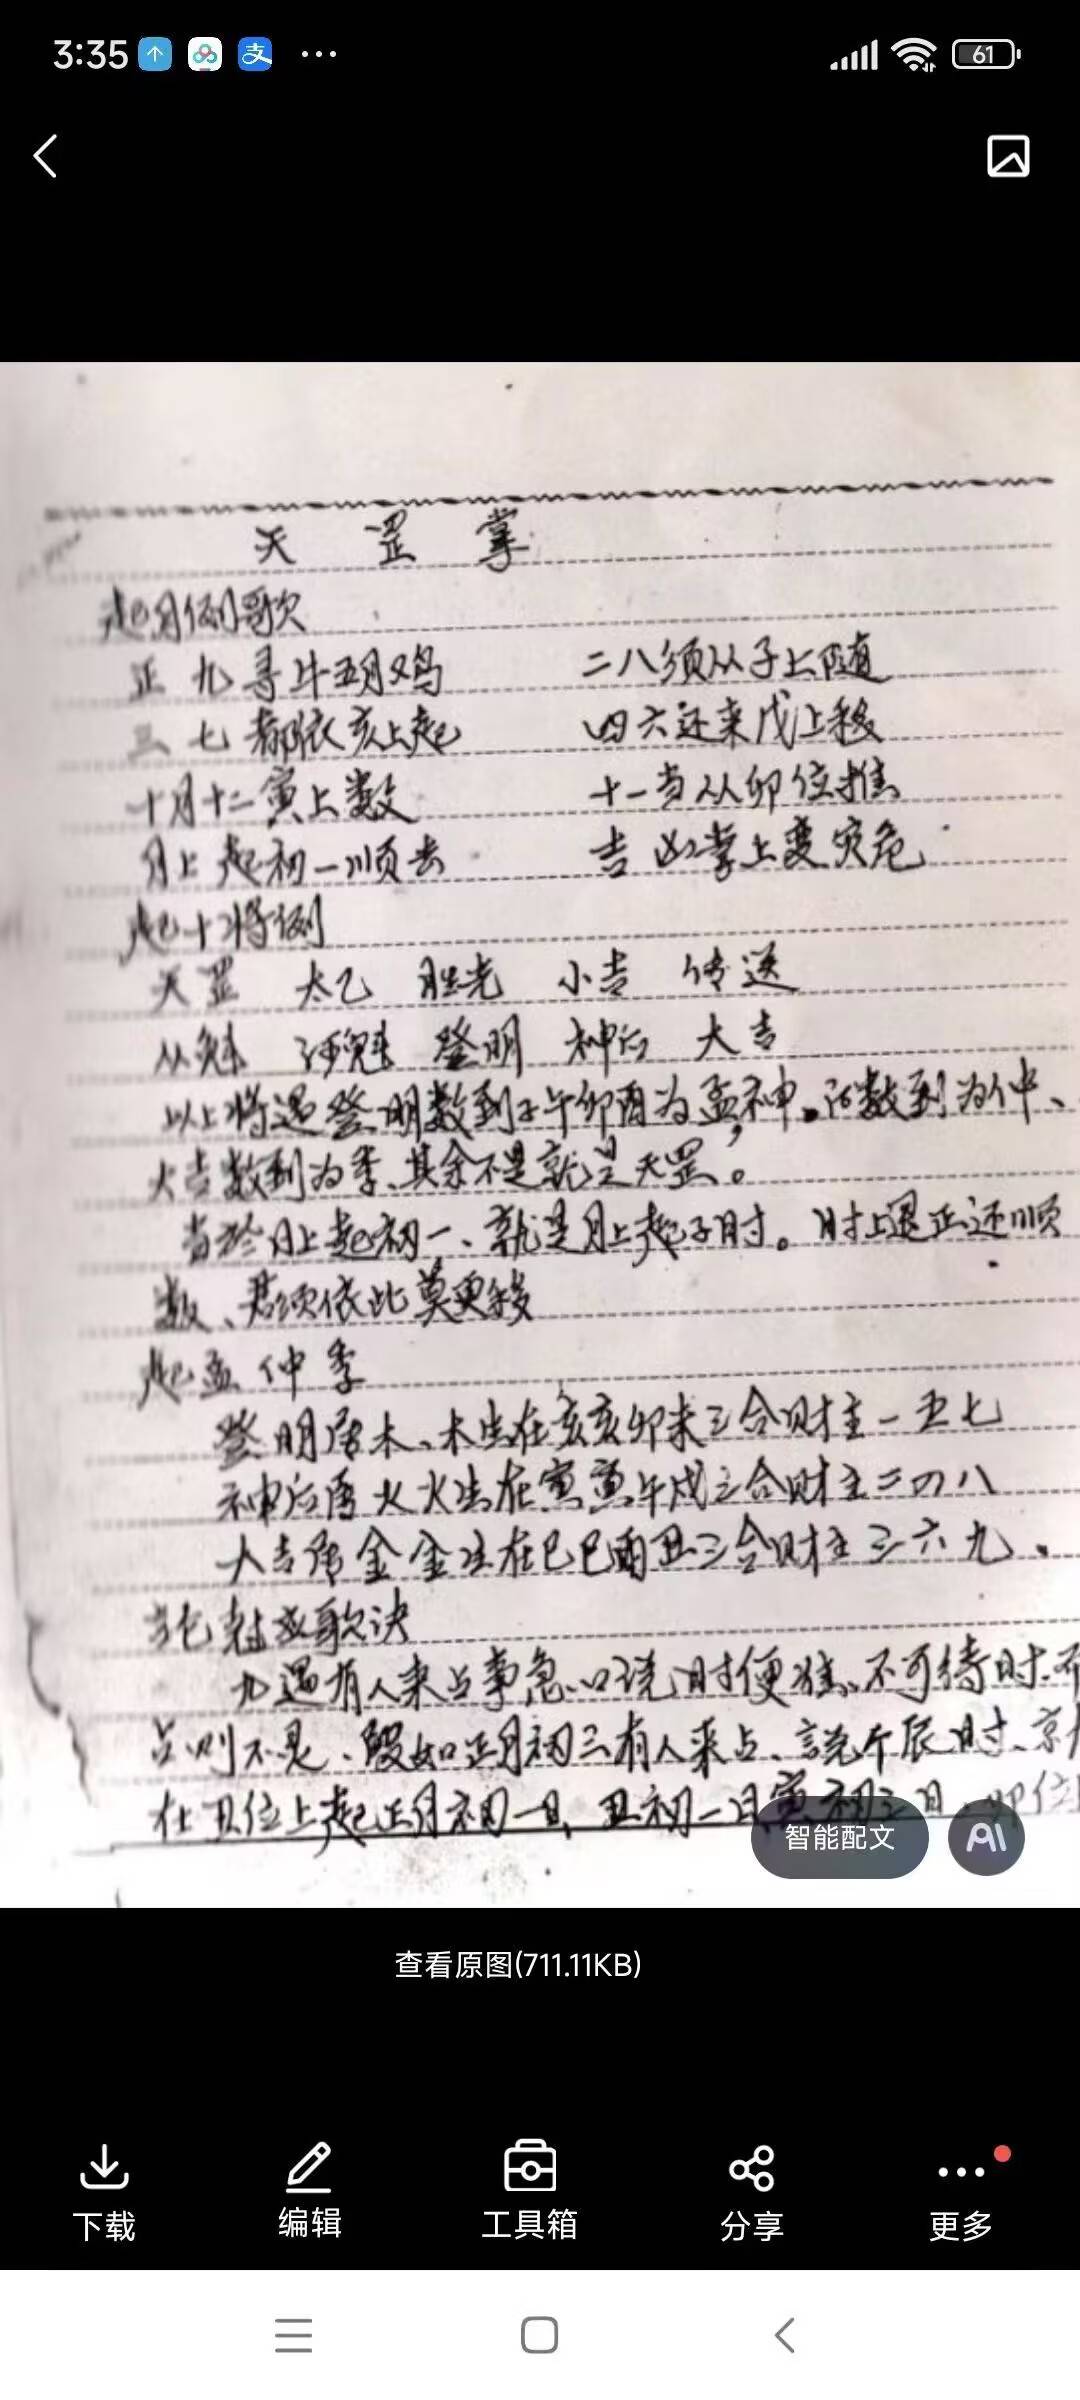 3:35
61
天罡掌
起月例歌
正九寻牛五月鸡 二八须从子上随
三七都依亥上起 四六还来戌上移
十月十二寅上数 十一当从卯位推
月上起初一顺去 吉凶掌上变灾危
起十将例
天罡 太乙 胜光 小吉 传送
从魁 河魁 登明 神后 大吉
以上将遇登明数到子午卯酉为孟神。后数到为仲、
大吉数到为季、其余不是就是天罡。
当于月上起初一、就是月上起子时。时上退正还顺
数、君须依此莫更移
起孟仲季
登明居木、木生在亥亥卯未三合财主一五七
神后居火火生在寅寅午戌三合财主二四八
大吉居金金生在巳巳酉丑三合财主三六九、
歌诀
九遇有人来占事急口说时便准、不可待时、不
占则不灵、假如正月初三有人来占、説个辰时、
在丑位上起正月初一日、丑初一日寅初二日、卯位
智能配文
AI
查看原图(711.11KB)
下载 编辑 工具箱 分享 更多